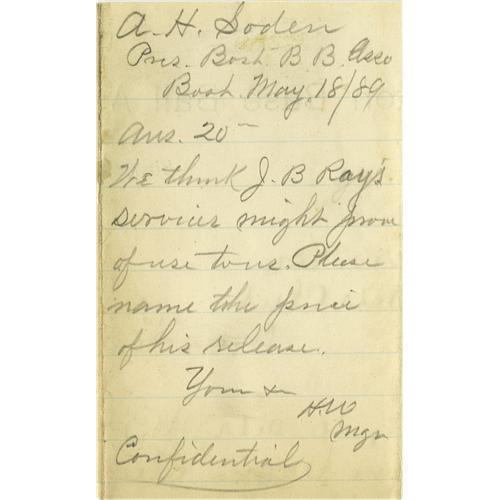 A. H. Soden
Pres. Bost. B. B. Asso
Bost. May, 18/89
Ans. 20-
We think J. B Ray's
services might prove
of use to us. Please
name the price
of his release.
Yours &
H.W
Mgr
Confidential